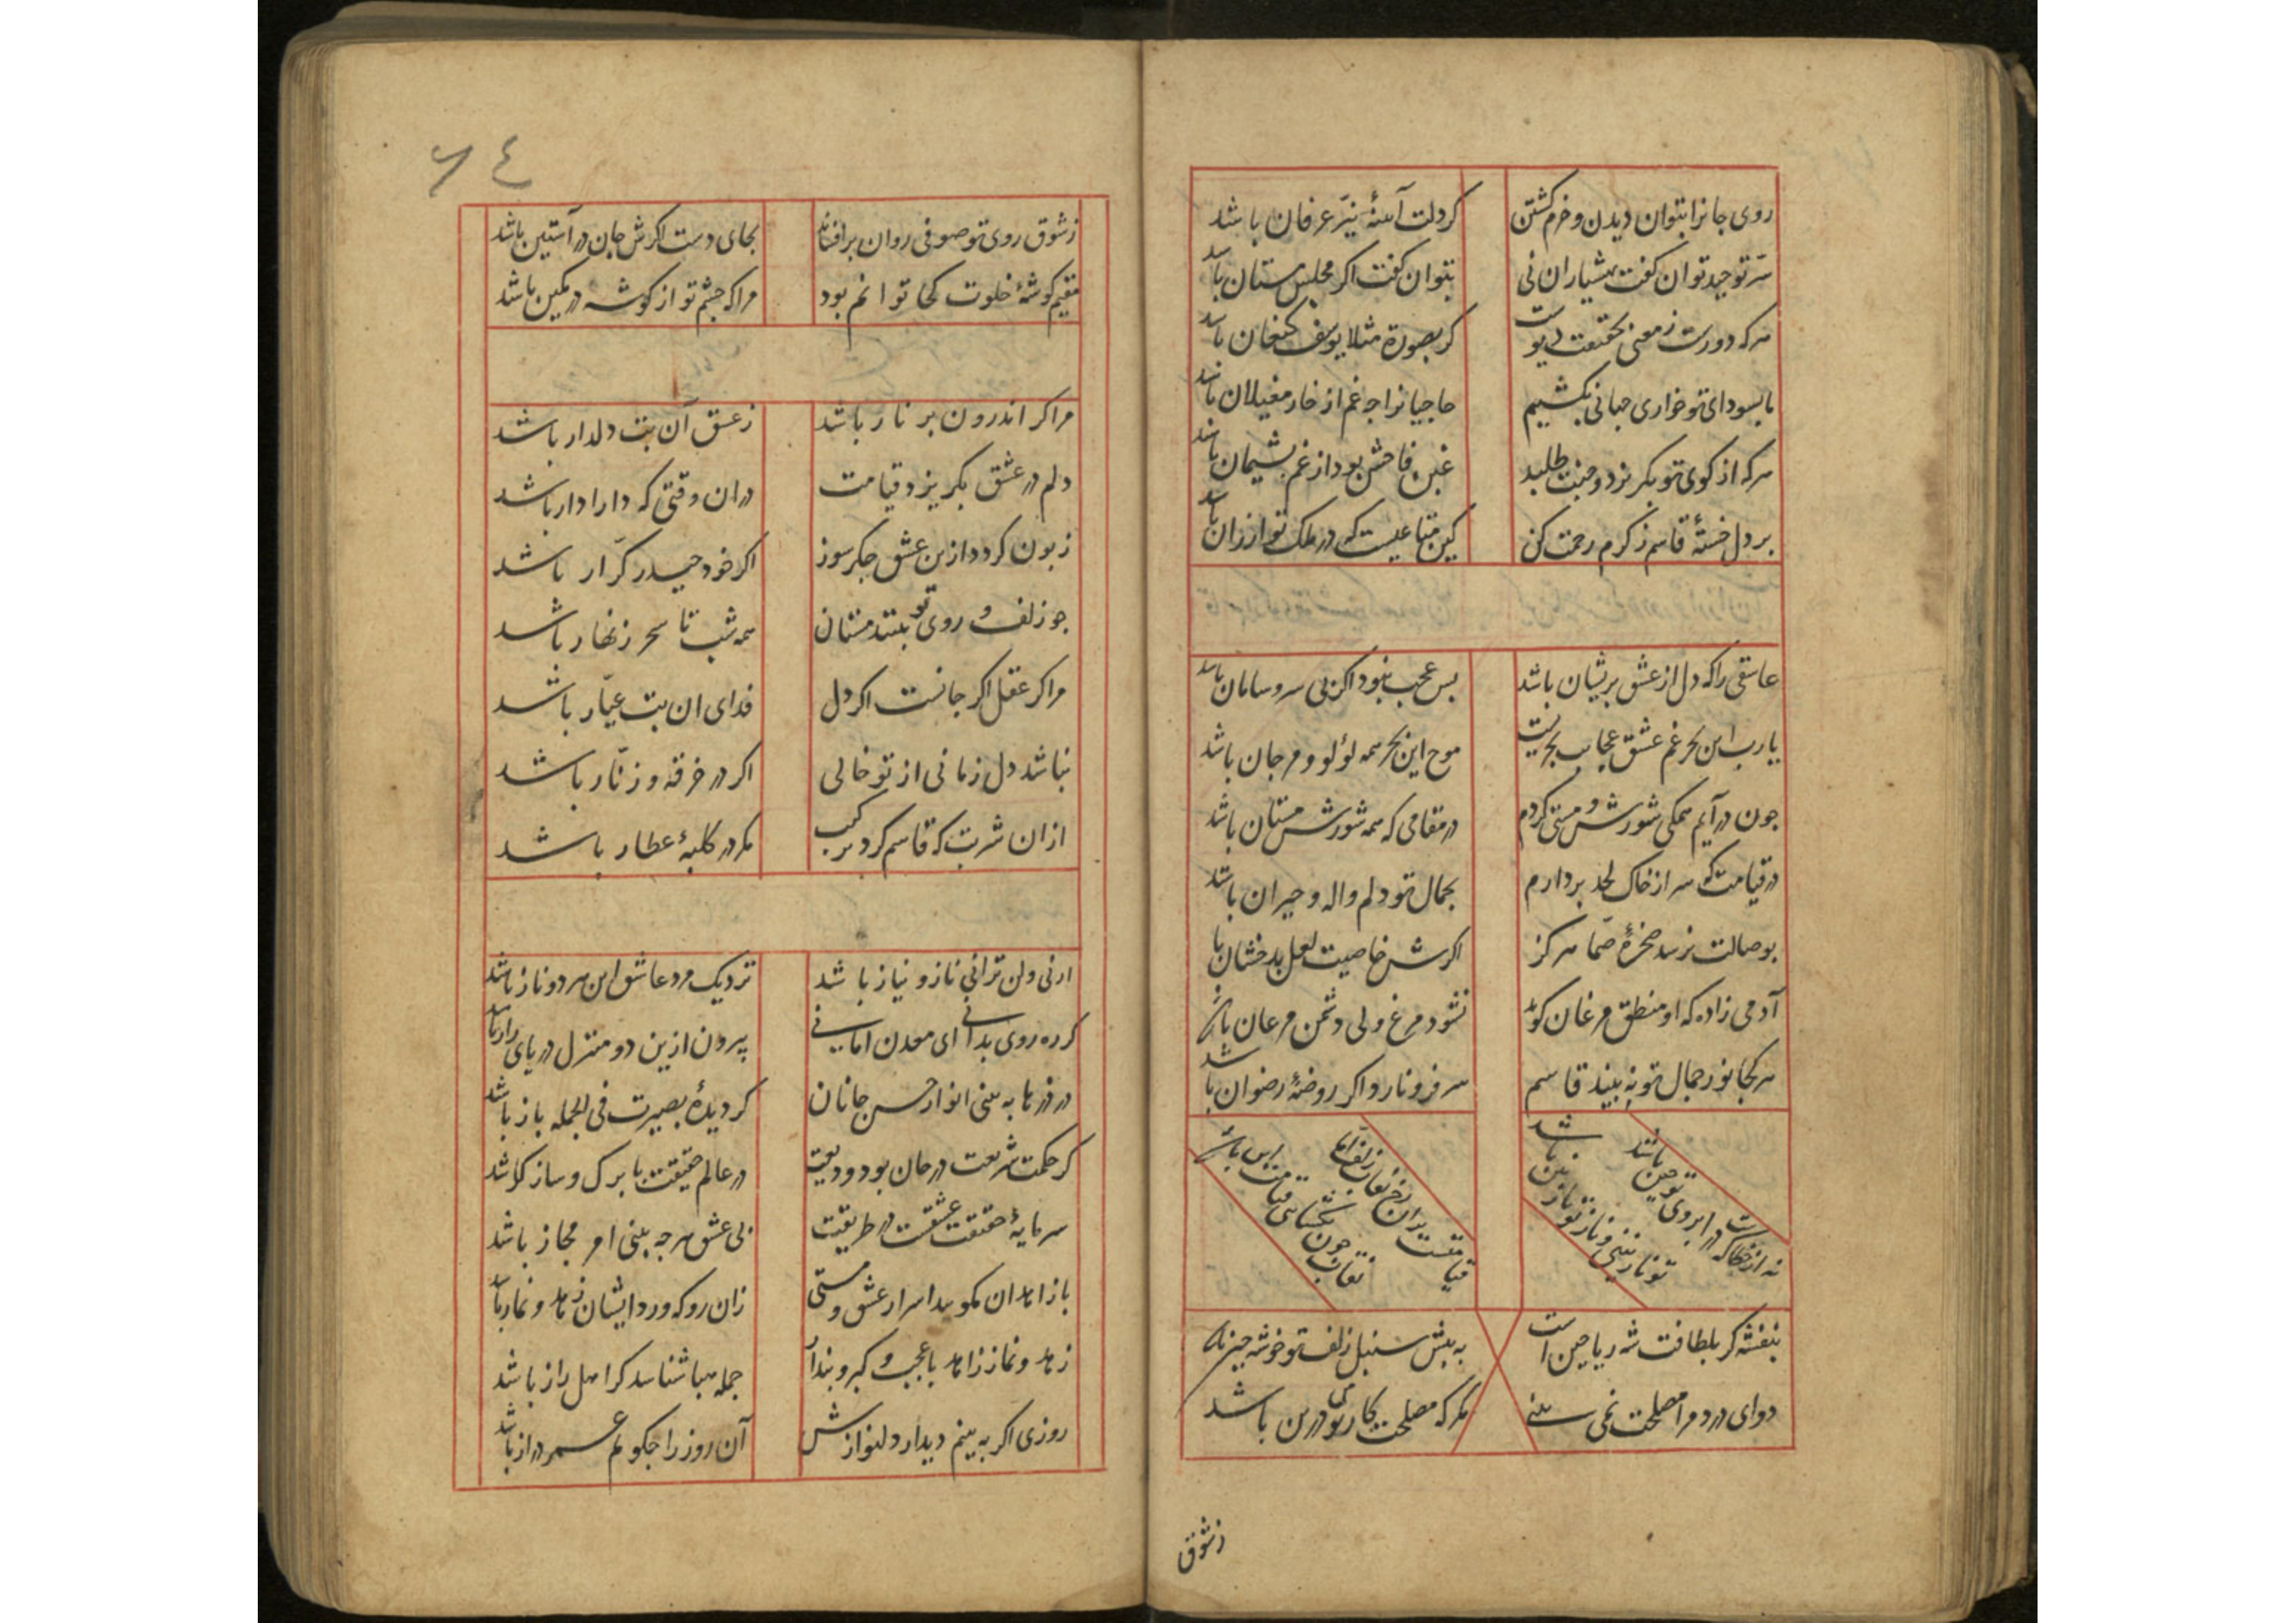 روی جانرا بتوان دیدن و خرم کشتن کر دلت آینهٔ نیّر عرفان باشد
سرّ توحید توان کفت بهشیاران نی بتوان کفت اکر مجلس مستان باشد
هرکه دورست ز معنی بحقیقت دیوست کر بصورة مثلا یوسف کنعان باشد
ما بسودای تو خواری جهانی بکشیم حاجیانرا چه غم از خار مغیلان باشد
هرکه از کوی تو بکریزد و جنت طلبد غبن فاحش بود از غم پشیمان باشد
بر دل خستهٔ قاسم ز کرم رحمت کن کین متاعیست که در ملک تو ارزان باشد
عاشقی را که دل از عشق پریشان باشد بس عجب نبود اکر بی سر و سامان باشد
یارب این بحر غم عشق عجایب بحریست موج این بحر همه لؤلو و مرجان باشد
چون در آیم همکی شورش و مستی کردم در مقامی که همه شورش مستان باشد
در قیامت که سر از خاک لحد بردارم بجمال تو دلم واله و حیران باشد
بوصالت نرسد صخرهٔ صمّا هرکز اکرش خاصیت لعل بدخشان باشد
آدمی زاده که او منطق مرغان کوید نشود مرغ ولی دشمن مرغان باشد
هر کجا نور جمال تو به بیند قاسم سر فرو نارد اکر روضهٔ رضوان باشد
نه از خطاست که در ابروی تو چین باشد تو نازنینی و ناز تو نازنین باشد
قیامتست بدان رخ نقاب زلف اما نقاب چون بکشایی قیامت این باشد
بنفشه کر بلطافت شه ریاحین است به پیش سنبل زلف تو خوشه چین باشد
دوای درد مرا مصلحت نمی بینی مکر که مصلحت کار من درین باشد
زشوق
٦٤
زشوق روی تو صوفی روان برافشاند بجای دست اکرش جان در آستین باشد
مقیم کوشهٔ خلوت کجا توانم بود مرا که چشم تو از کوشه در کمین باشد
مرا کر اندرون پر نار باشد ز عشق آن بت دلدار باشد
دلم در عشق بکریزد قیامت دران وقتی که دارا دار باشد
زبون کردد ازین عشق جکر سوز اکر خود حیدر کرّار باشد
چو زلف و روی تو بینند مستان همه شب تا سحر زنهار باشد
مرا کر عقل اکر جانست اکر دل فدای ان بت عیّار باشد
نباشد دل زمانی از تو خالی اکر در خرقه و زنّار باشد
ازان شربت که قاسم کرد ترکیب مکر در کلبهٔ عطار باشد
ارنی ولن ترانی ناز و نیاز باشد نزدیک مرد عاشق این هر دو ناز باشد
کر ره روی بدانی ای معدن امانی بیرون ازین دو منزل دریای راز باشد
در ذرها به بینی انوار حسن جانان کر دیدهٔ بصیرت فی الجمله باز باشد
کر حکمت شریعت در جان بود ودیعت در عالم حقیقت با برک و ساز باشد
سرمایهٔ حقیقت عشقست در طریقت بی عشق هرچه بینی امر مجاز باشد
با زاهدان مکویید اسرار عشق و مستی زان رو که ورد ایشان زهد و نماز باشد
زهد و نماز زاهد با عجب و کبر و پندار جمله هبا شناسد کر اهل راز باشد
روزی اکر به بینم دیدار دلنوازش آن روز را چکویم عمر دراز باشد